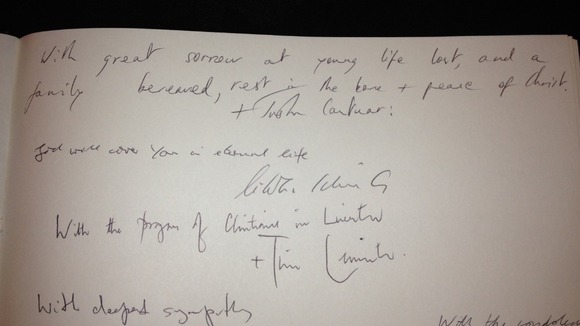 With great sorrow at young life lost, and a
family bereaved, rest in the love + peace of Christ.
+ Justin Cantuar:
God will cover you in eternal life
With the prayers of Christians in Leicester
+ Tim Leicester.
With deepest sympathy
With the condolen